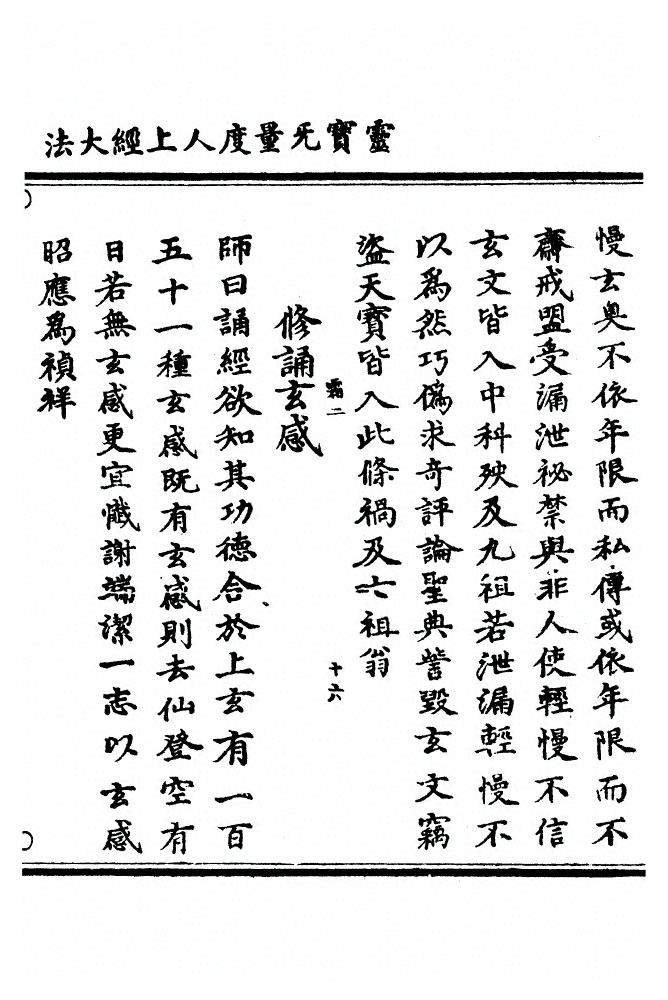 靈寶无量度人上經大法
慢玄奥不依年限而私傳或依年限而不
齋戒盟受漏泄祕禁與非人使輕慢不信
玄文皆入中科殃及九祖若泄漏輕慢不
以為然巧偽求奇評論聖典訾毀玄文竊
盜天寶皆入此條禍及六祖翁
霜二
十六
修誦玄感
師曰誦經欲知其功德合於上玄有一百
五十一種玄感既有玄感則去仙登空有
日若無玄感更宜懺謝端潔一志以玄感
昭應為禎祥